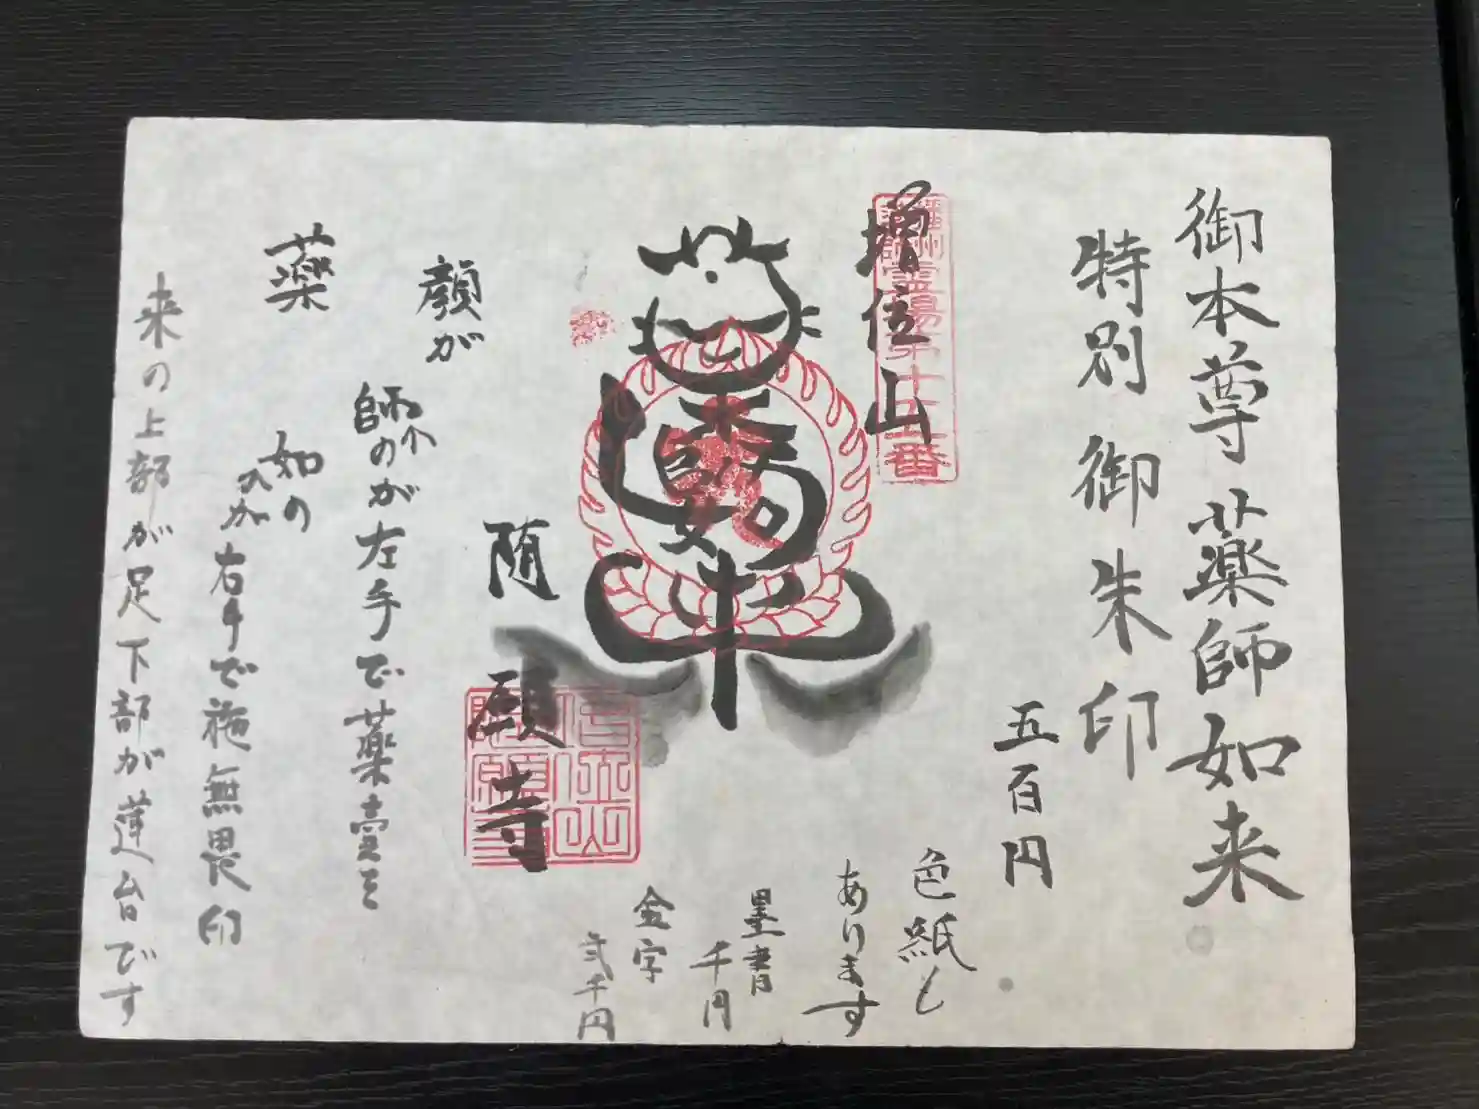 御本尊薬師如来
特別御朱印
五百円
色紙も
あります
墨書
千円
金字
弐千円
播州
霊場第十五番
増位山
薬師如来
随願寺
顔が
薬
師の
が左手で薬壺を
如の
が右手で施無畏印
来の上部が足下部が蓮台です